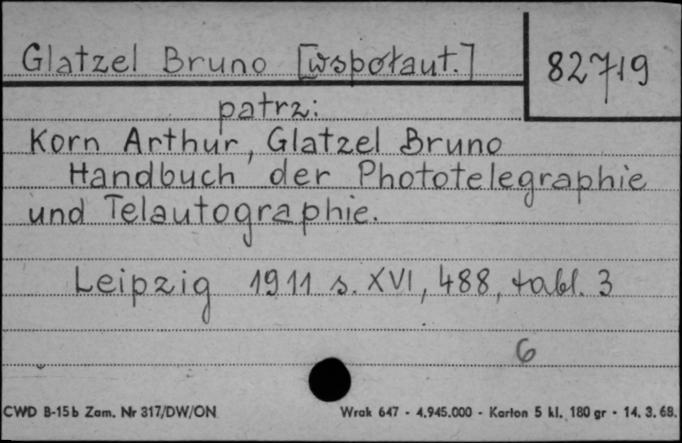 Glatzel Bruno [współaut.] 82719
patrz:
Korn Arthur, Glatzel Bruno
Handbuch der Phototelegraphie
und Telautographie.
Leipzig 1911 s. XVI, 488, tabl. 3
6
CWD B-15b Zam. Nr 317/DW/ON Wrak 647 - 4.945.000 - Karton 5 kl. 180 gr - 14. 3. 68.